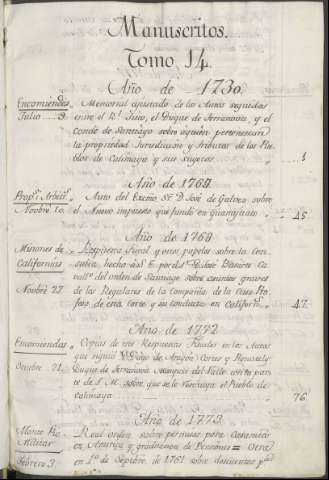 Manuscritos.
Tomo 14.
Año de 1730.
Encomiendas Memorial ajustado de los Autos seguidos
Julio 9. entre el Rl. Fisco, el Duque de Terranova, y el
Conde de Santiago sobre à quién pertenecian
la propiedad Jurisdiccion y tributos de los Pue-
blos de Calimaya y sus sujetos. 1
Año de 1764
Auto del Exmo Sr. D. José de Galvez sobre
Novbre 10. el Nuevo impuesto que fundó en Guanajuato 45
Año de 1768
Misiones de Respuesta Fiscal y otros papeles sobre la Con-
Californias sulta hecha à S. E. por el D. José
del orden de Santiago sobre asuntos graves
Novbre 27 de los Regulares de la Compañia de la Casa Pro-
fesa de esta Corte y su conducta en Californs. 47.
Año de 1772
Encomiendas Copias de tres Respuestas Fiscales en los Autos
que siguió D. Diego de Aragon Cortes y
Octubre 21. Duque de Terranova Marques del Valle con la par-
te de S. M. sobre que se le restituya el Pueblo de
Calimaya 76.
Año de 1773
Monte Pio Real orden sobre permisos para Casamientos
Militar en America y graduacion de Pensiones = Otra
Febrero 3. en 1o. de Septbre. de 1761 sobre descuentos pa.